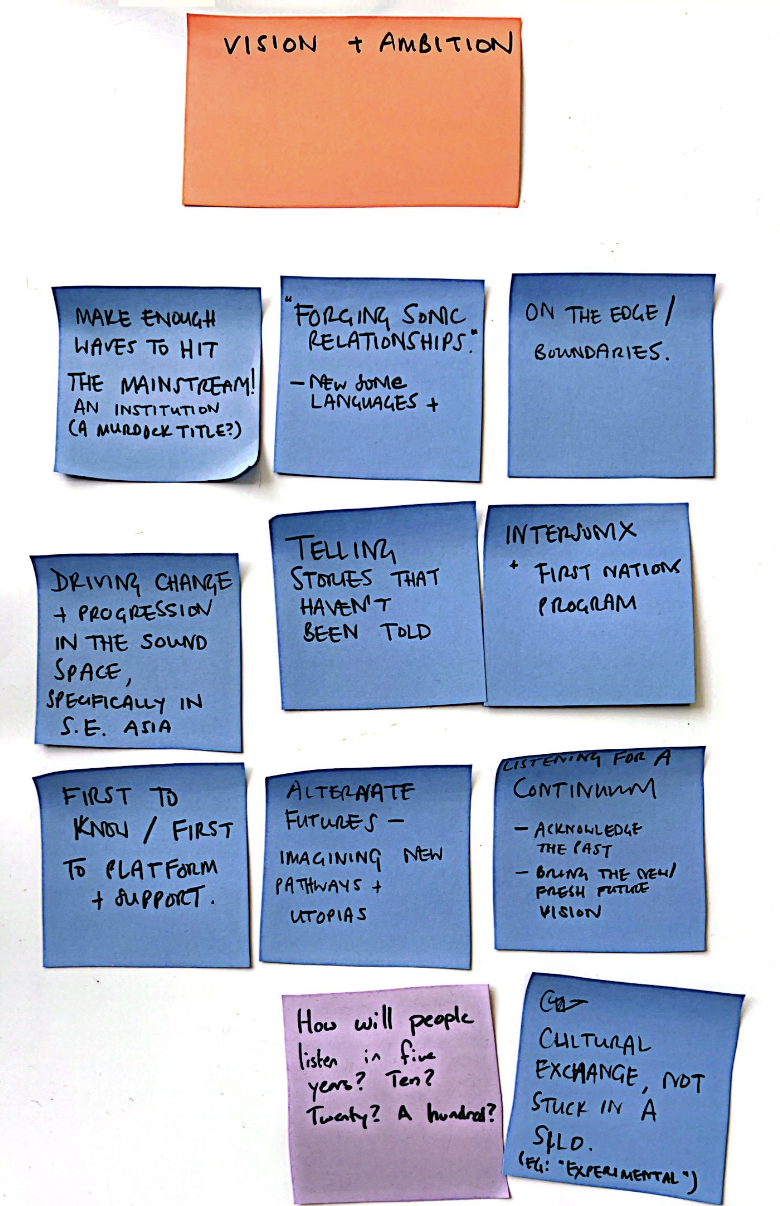 VISION + AMBITION
MAKE ENOUGH
WAVES TO HIT
THE MAINSTREAM!
AN INSTITUTION
(A MURDOCK TITLE?)
"FORGING SONIC
RELATIONSHIPS."
- NEW SONIC
LANGUAGES +
ON THE EDGE /
BOUNDARIES.
DRIVING CHANGE
+ PROGRESSION
IN THE SOUND
SPACE,
SPECIFICALLY IN
S.E. ASIA
TELLING
STORIES THAT
HAVEN'T
BEEN TOLD
+ FIRST NATIONS
PROGRAM
FIRST TO
KNOW / FIRST
TO PLATFORM
+ SUPPORT.
ALTERNATE
FUTURES -
IMAGINING NEW
PATHWAYS +
UTOPIAS
LISTENING FOR A
CONTINUUM
- ACKNOWLEDGE
THE PAST
- BRING THE NEW/
FRESH FUTURE
VISION
How will people
listen in five
years? Ten?
Twenty? A hundred?
CULTURAL
EXCHANGE, NOT
STUCK IN A
SILO.
(EG: "EXPERIMENTAL")